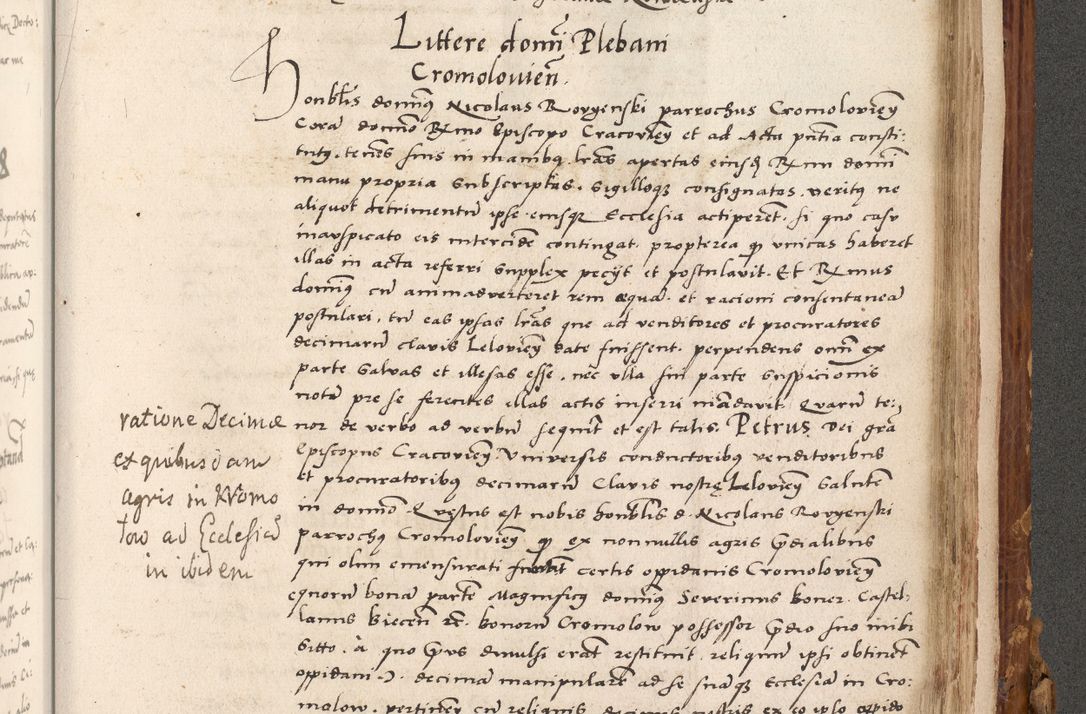 Littere domī Plebani
Cromolovień.
Honblis domīus Nicolaus Rovgenski parrochus Cromoloviēn
Corā domīo Rmo Episcopo Cracoviēn et ad Acta pntia consti:
tutus, tenēs suis in manibus lras apertas eiusdē Rmi domī
manu propria subscriptas, sigilloque consignatas, veritus ne
aliquot detrimentū ipse eiusque Ecclesia acciperent, si quo casu
inauspicato eis intercidē contingat, propterea qͣ unicas haberet
illas in acta referri supplex petijt et postulavit. Et Rmus
domīus cū animadverteret rem equā et racioni consentaneā
postulari, tū eas ipsas lras que ad venditores et procuratores
decimarū clavis Leloviēn date fuissent, perpendens omī ex
parte salvas et illesas esse, nec ulla sui parte suspicionis
notā pre se ferētes illas actis inseri mādavit. Quarū te:
nor de verbo ad verbū sequit et est talis. Petrus dei grā
Episcopus Cracoviēn. Universis conductoribus venditoribus
et procuratoribus decimarū Clavis nostre Leloviēn Salutem
in domīo. Questus est nobis honblis d. Nicolaus Rovgenski
parrochus Cromoloviēn qͣ ex nonnullis agris predialibus
qui olim emensurati certis oppidanis Cromoloviēn
equorū bonā partē Magnificus domīus Severinus Boner Castel:
lanus Biecēn etc. bonorū Cromolow possessor predio suo inibi
sitto, à quo prius divulsi erāt restituit, reliquū ipsi obtinēt
oppidani, decimā manipularē ad se suāque Ecclesiā in Cro:
molow, pertinēre cū reliquis decimis nostris ex eo ipso oppido
ratione Decimæ
ex quibusdam
agris in Kromo
low ad Ecclesiā
in ibidem